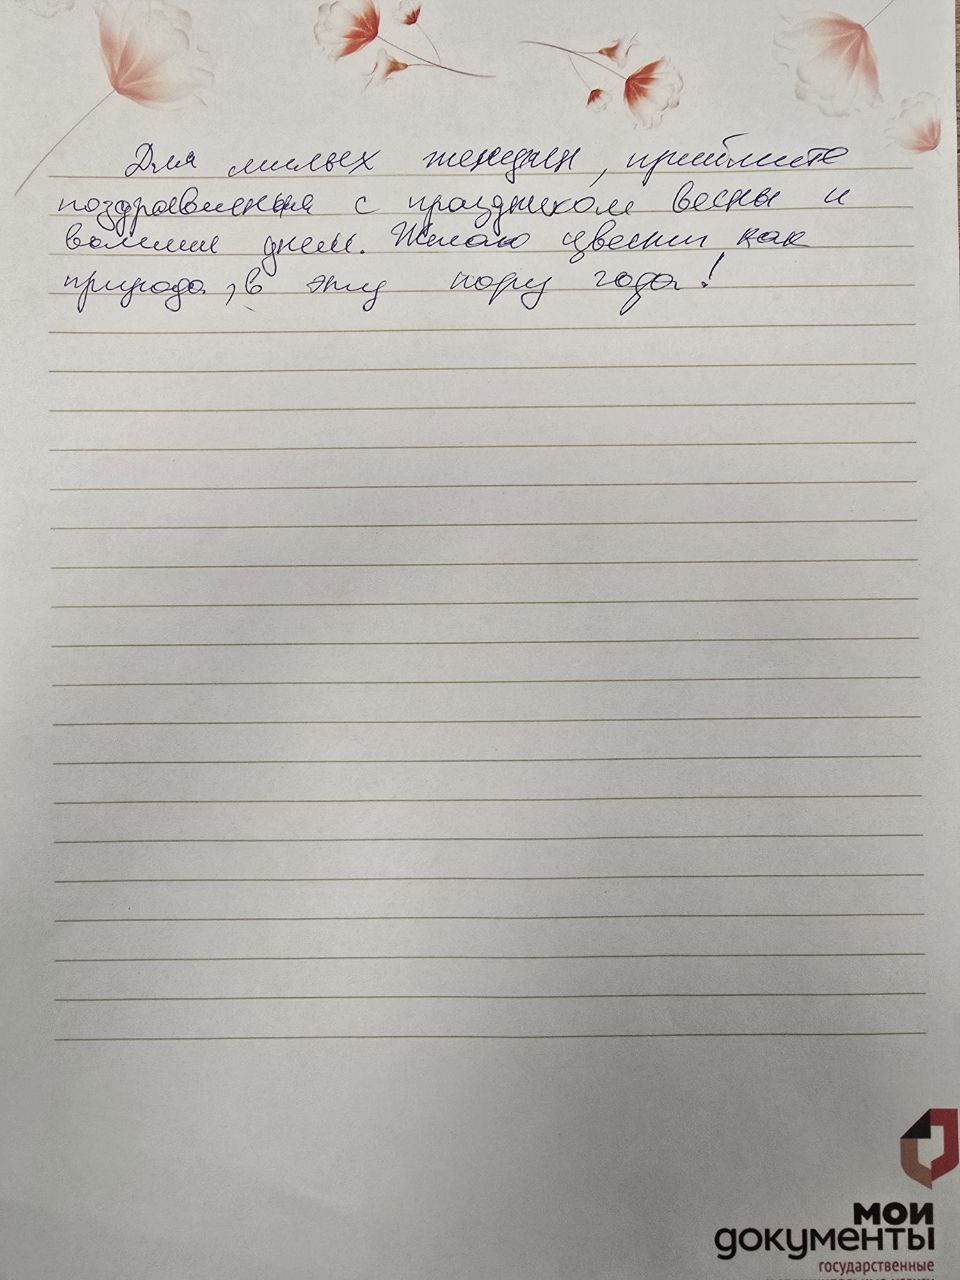 Для милых женщин, приймите
поздравления с праздником весны и
вашим днем. Желаю цвести как
природа, в эту пору года!
мои
документы
государственные